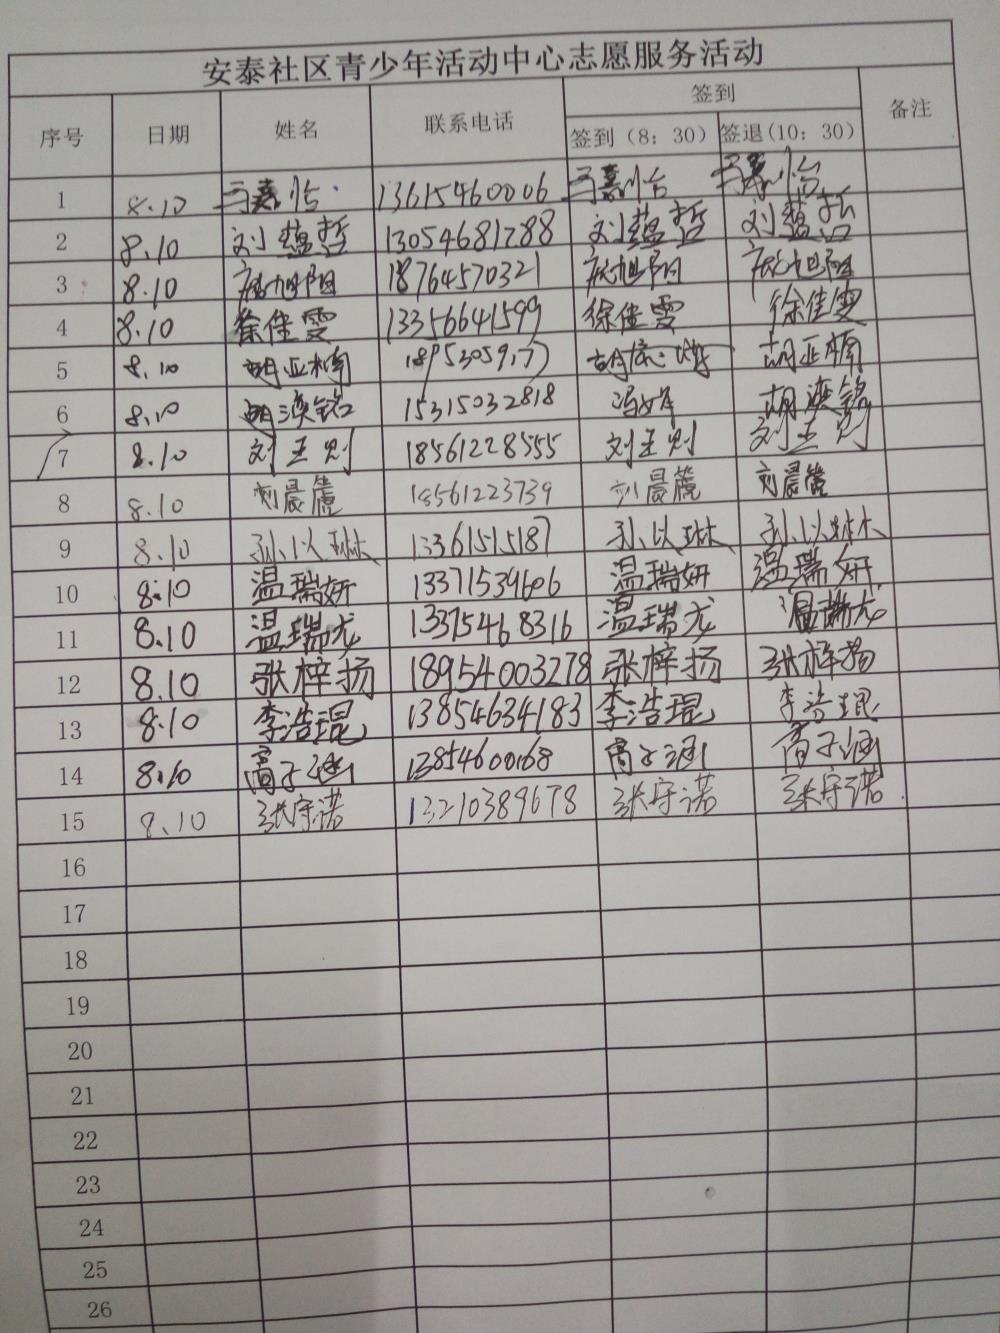 安泰社区青少年活动中心志愿服务活动
序号 日期 姓名 联系电话 签到 备注
签到（8：30） 签退(10：30）
1 8.10 马嘉怡 13615460006 马嘉怡 马嘉怡
2 8.10 刘蕴哲 13054681288 刘蕴哲 刘蕴哲
3 8.10 旭阳 18764570321 旭阳 旭阳
4 8.10 徐佳雯 13356641599 徐佳雯 徐佳雯
5 8.10 胡亚楠 胡亚楠
6 8.10 胡濒铭 15315032818 冯婷 胡濒铭
7 8.10 刘王则 18561228555 刘王则 刘王则
8 8.10 刘晨箷 18561223739 刘晨箷 刘晨箷
9 8.10 孙以琳 13361515187 孙以琳 孙以琳
10 8.10 温瑞妍 13371539606 温瑞妍 温瑞妍
11 8.10 温瑞龙 13375468316 温瑞龙 温瑞龙
12 8.10 张梓扬 18954003278 张梓扬 张梓扬
13 8.10 李浩琨 13854634183 李浩琨 李浩琨
14 8.10 高子涵 13854600168 高子涵 高子涵
15 8.10 张守诺 13210389678 张守诺 张守诺
16
17
18
19
20
21
22
23
24
25
26